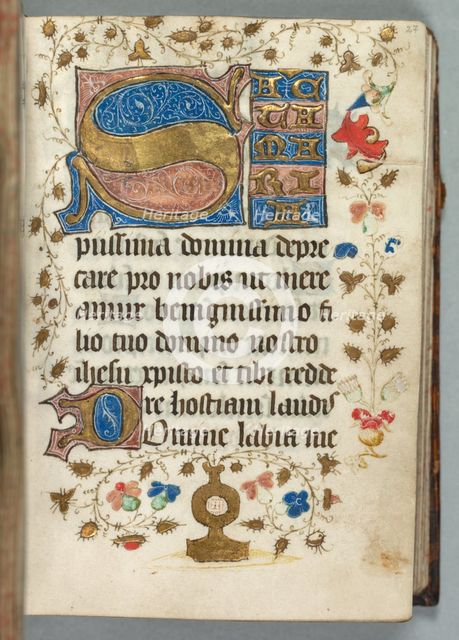 27
S AC
TA
MA
RI
A
piissima domina depre
care pro nobis ut mere
amur benignissimo fi
lio tuo domino nostro
ihesu xpisto et tibi redde
re hostiam laudis
Domine labia me
Heritage
Heritage
Heritage
Heritage